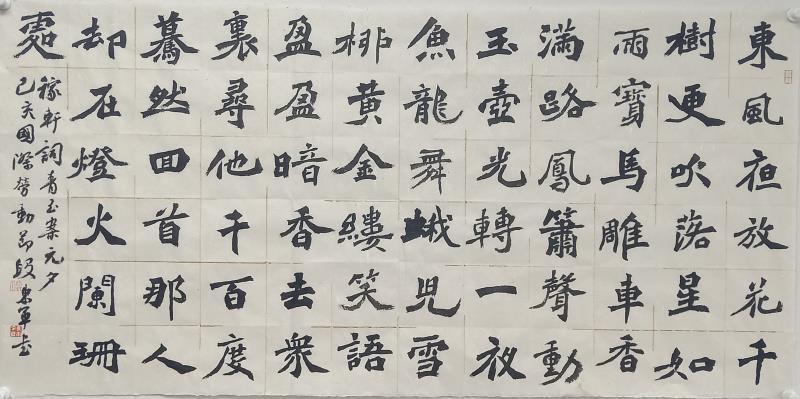 東風夜放花千
樹更吹落星如
雨寶馬雕車香
滿路鳳簫聲動
玉壺光轉一夜
魚龍舞蛾兒雪
柳黃金縷笑語
盈盈暗香去衆
裏尋他千百度
驀然回首那人
却在燈火闌珊
處
稼軒詞青玉案元夕
己亥國際勞動節段軍書